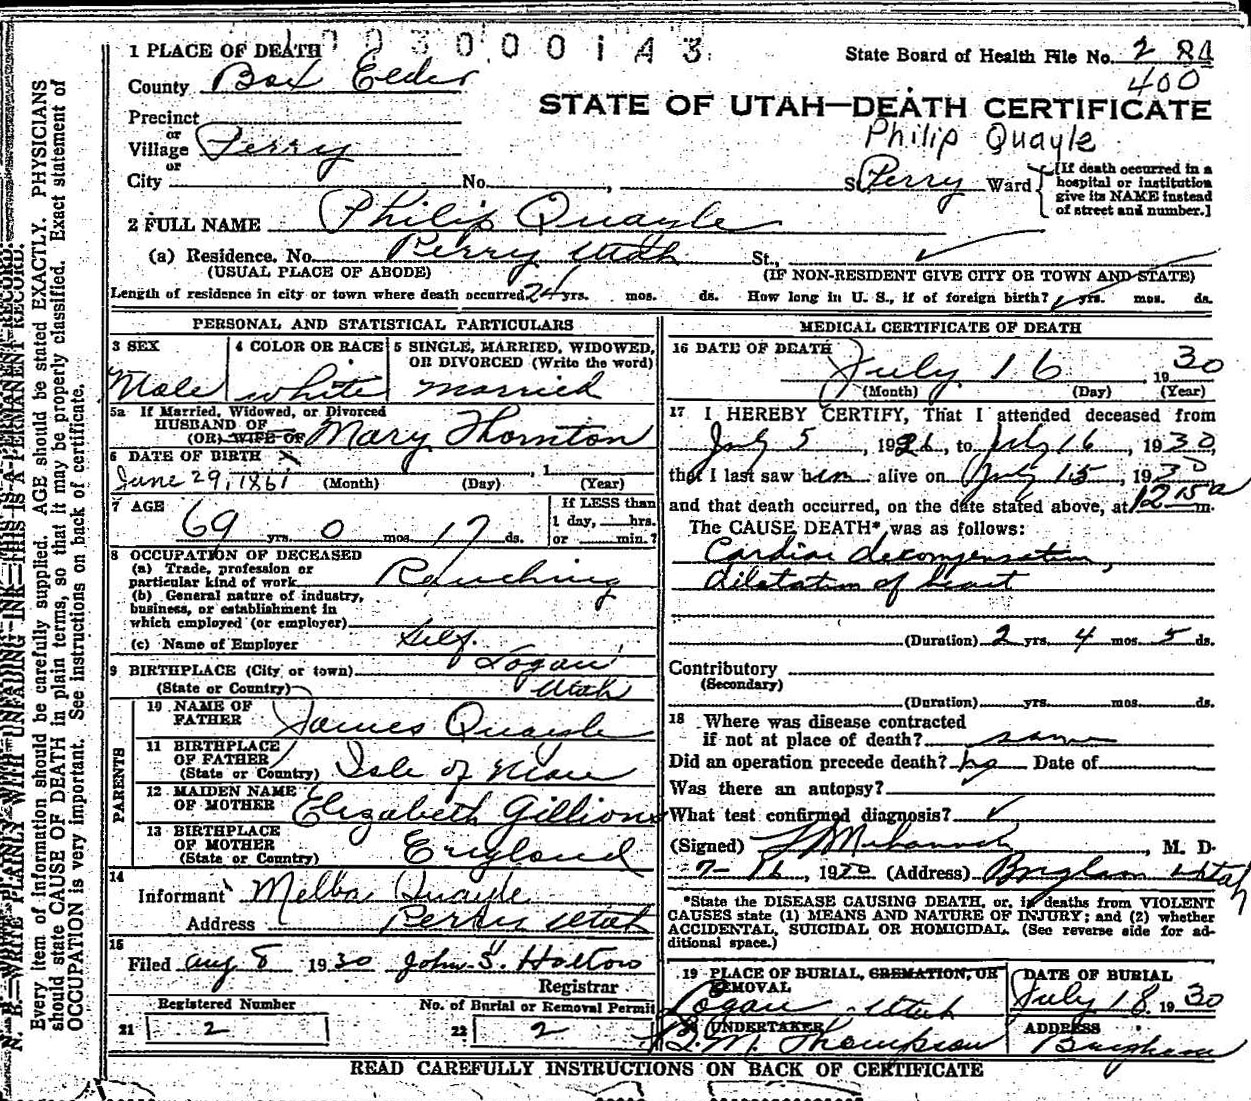 1 PLACE OF DEATH 003000143
State Board of Health File No. 2 84
400
County Box Elder
STATE OF UTAH—DEATH CERTIFICATE
Precinct
or
Philip Quayle
Village Perry
or
City No. , St. Perry Ward [If death occurred in a hospital or institution give its NAME instead of street and number.]
2 FULL NAME Philip Quayle
(a) Residence. No. Perry Utah St.,
(USUAL PLACE OF ABODE) (IF NON-RESIDENT GIVE CITY OR TOWN AND STATE)
Length of residence in city or town where death occurred 24 yrs. mos. ds. How long in U. S., if of foreign birth? yrs. mos. ds.
PERSONAL AND STATISTICAL PARTICULARS
3 SEX 4 COLOR OR RACE 5 SINGLE, MARRIED, WIDOWED, OR DIVORCED (Write the word)
Male white married
5a If Married, Widowed, or Divorced
HUSBAND OF
(OR) WIFE OF Mary Thornton
6 DATE OF BIRTH
June 29, 1861 (Month) (Day) , 1 (Year)
7 AGE If LESS than
69 yrs. 0 mos. 17 ds. 1 day, hrs.
or min.?
8 OCCUPATION OF DECEASED
(a) Trade, profession or
particular kind of work Ranching
(b) General nature of industry,
business, or establishment in
which employed (or employer)
(c) Name of Employer Self.
9 BIRTHPLACE (City or town) Logan
(State or Country) Utah
PARENTS
10 NAME OF
FATHER James Quayle
11 BIRTHPLACE
OF FATHER
(State or Country) Isle of Man
12 MAIDEN NAME
OF MOTHER Elizabeth Gillions
13 BIRTHPLACE
OF MOTHER
(State or Country) England
14
Informant Melba Quayle
Address Perry Utah
15
Filed Aug 8 1930 John S. Halton
Registrar
Registered Number No. of Burial or Removal Permit
21 2 22 2
MEDICAL CERTIFICATE OF DEATH
16 DATE OF DEATH
July 16 , 1930
(Month) (Day) (Year)
17 I HEREBY CERTIFY, That I attended deceased from
July 5 , 1926, to July 16 , 1930,
that I last saw him alive on July 15 , 1930
and that death occurred, on the date stated above, at 12 15 a m.
The CAUSE DEATH* was as follows:
Cardiac decompensation,
dilatation of heart
(Duration) 2 yrs. 4 mos. 5 ds.
Contributory
(Secondary)
(Duration) yrs. mos. ds.
18 Where was disease contracted
if not at place of death? same
Did an operation precede death? no Date of
Was there an autopsy?
What test confirmed diagnosis?
(Signed) , M. D.
7-16, 1930 (Address) Brigham Utah
*State the DISEASE CAUSING DEATH, or, in deaths from VIOLENT
CAUSES state (1) MEANS AND NATURE OF INJURY; and (2) whether
ACCIDENTAL, SUICIDAL OR HOMICIDAL. (See reverse side for ad-
ditional space.)
19 PLACE OF BURIAL, CREMATION, OR REMOVAL DATE OF BURIAL
Logan Utah July 18, 1930
UNDERTAKER ADDRESS
M. Thompson Brigham
READ CAREFULLY INSTRUCTIONS ON BACK OF CERTIFICATE
N. B.—WRITE PLAINLY WITH UNFADING INK—THIS IS A PERMANENT RECORD.
Every item of information should be carefully supplied. AGE should be stated EXACTLY. PHYSICIANS
should state CAUSE OF DEATH in plain terms, so that it may be properly classified. Exact statement of
OCCUPATION is very important. See instructions on back of certificate.